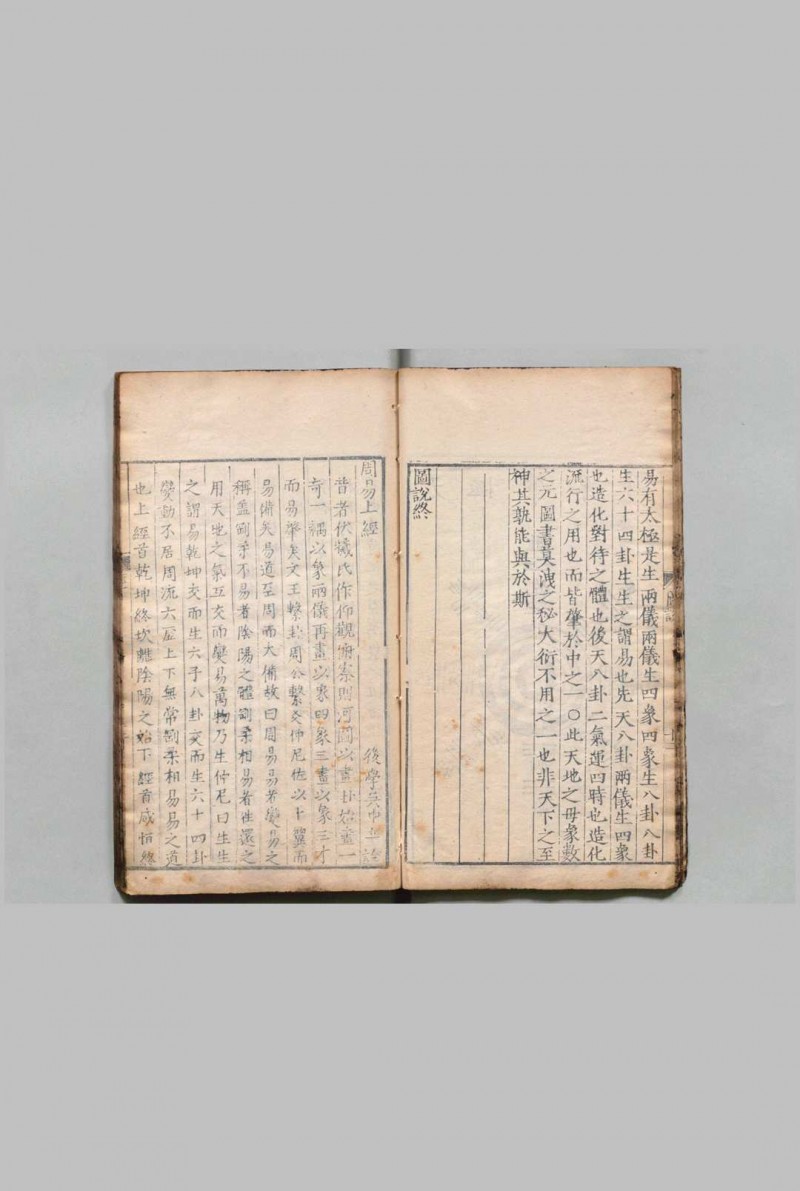 易有太極是生兩儀兩儀生四象四象生八卦八卦
生六十四卦生生之謂易也先天八卦兩儀生四象
也造化對待之體也後天八卦二氣運四時也造化
流行之用也而皆肇於中之一〇此天地之母象數
之元圖書莫洩之秘大衍不用之一也非天下之至
神其孰能與於斯
圖說終
周易上經
後學
昔者伏犧氏作仰觀俯察則河圖以畫卦始畫一
奇一耦以象兩儀再畫以象四象三畫以象三才
而易舉矣文王繫卦周公繫爻仲尼佐以十翼而
易備矣易道至周而大備故曰周易易者變易之
稱盖剛柔不易者陰陽之體剛柔相易者往還之
用天地之氣互交而變易萬物乃生仲尼曰生生
之謂易乾坤交而生六子八卦交而生六十四卦
變動不居周流六虛上下無常剛柔相易易之道
也上經首乾坤終坎離陰陽之始下經首咸恒終